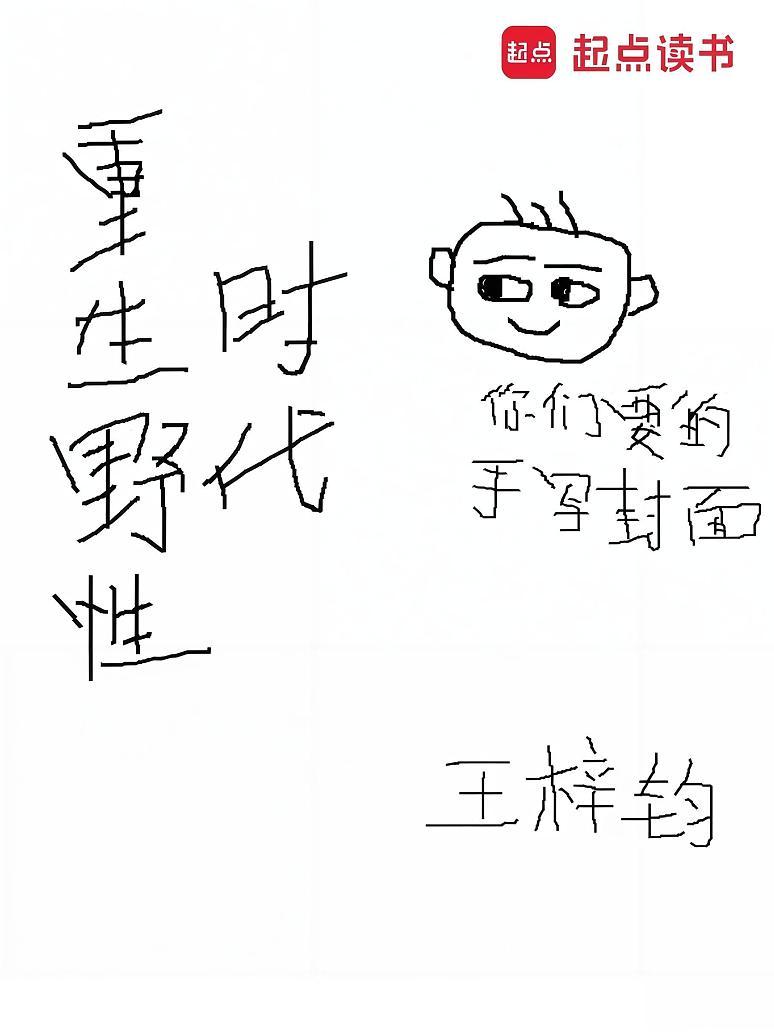 起点 起点读书
重生野性
时代
你们要的
手写封面
王梓钧